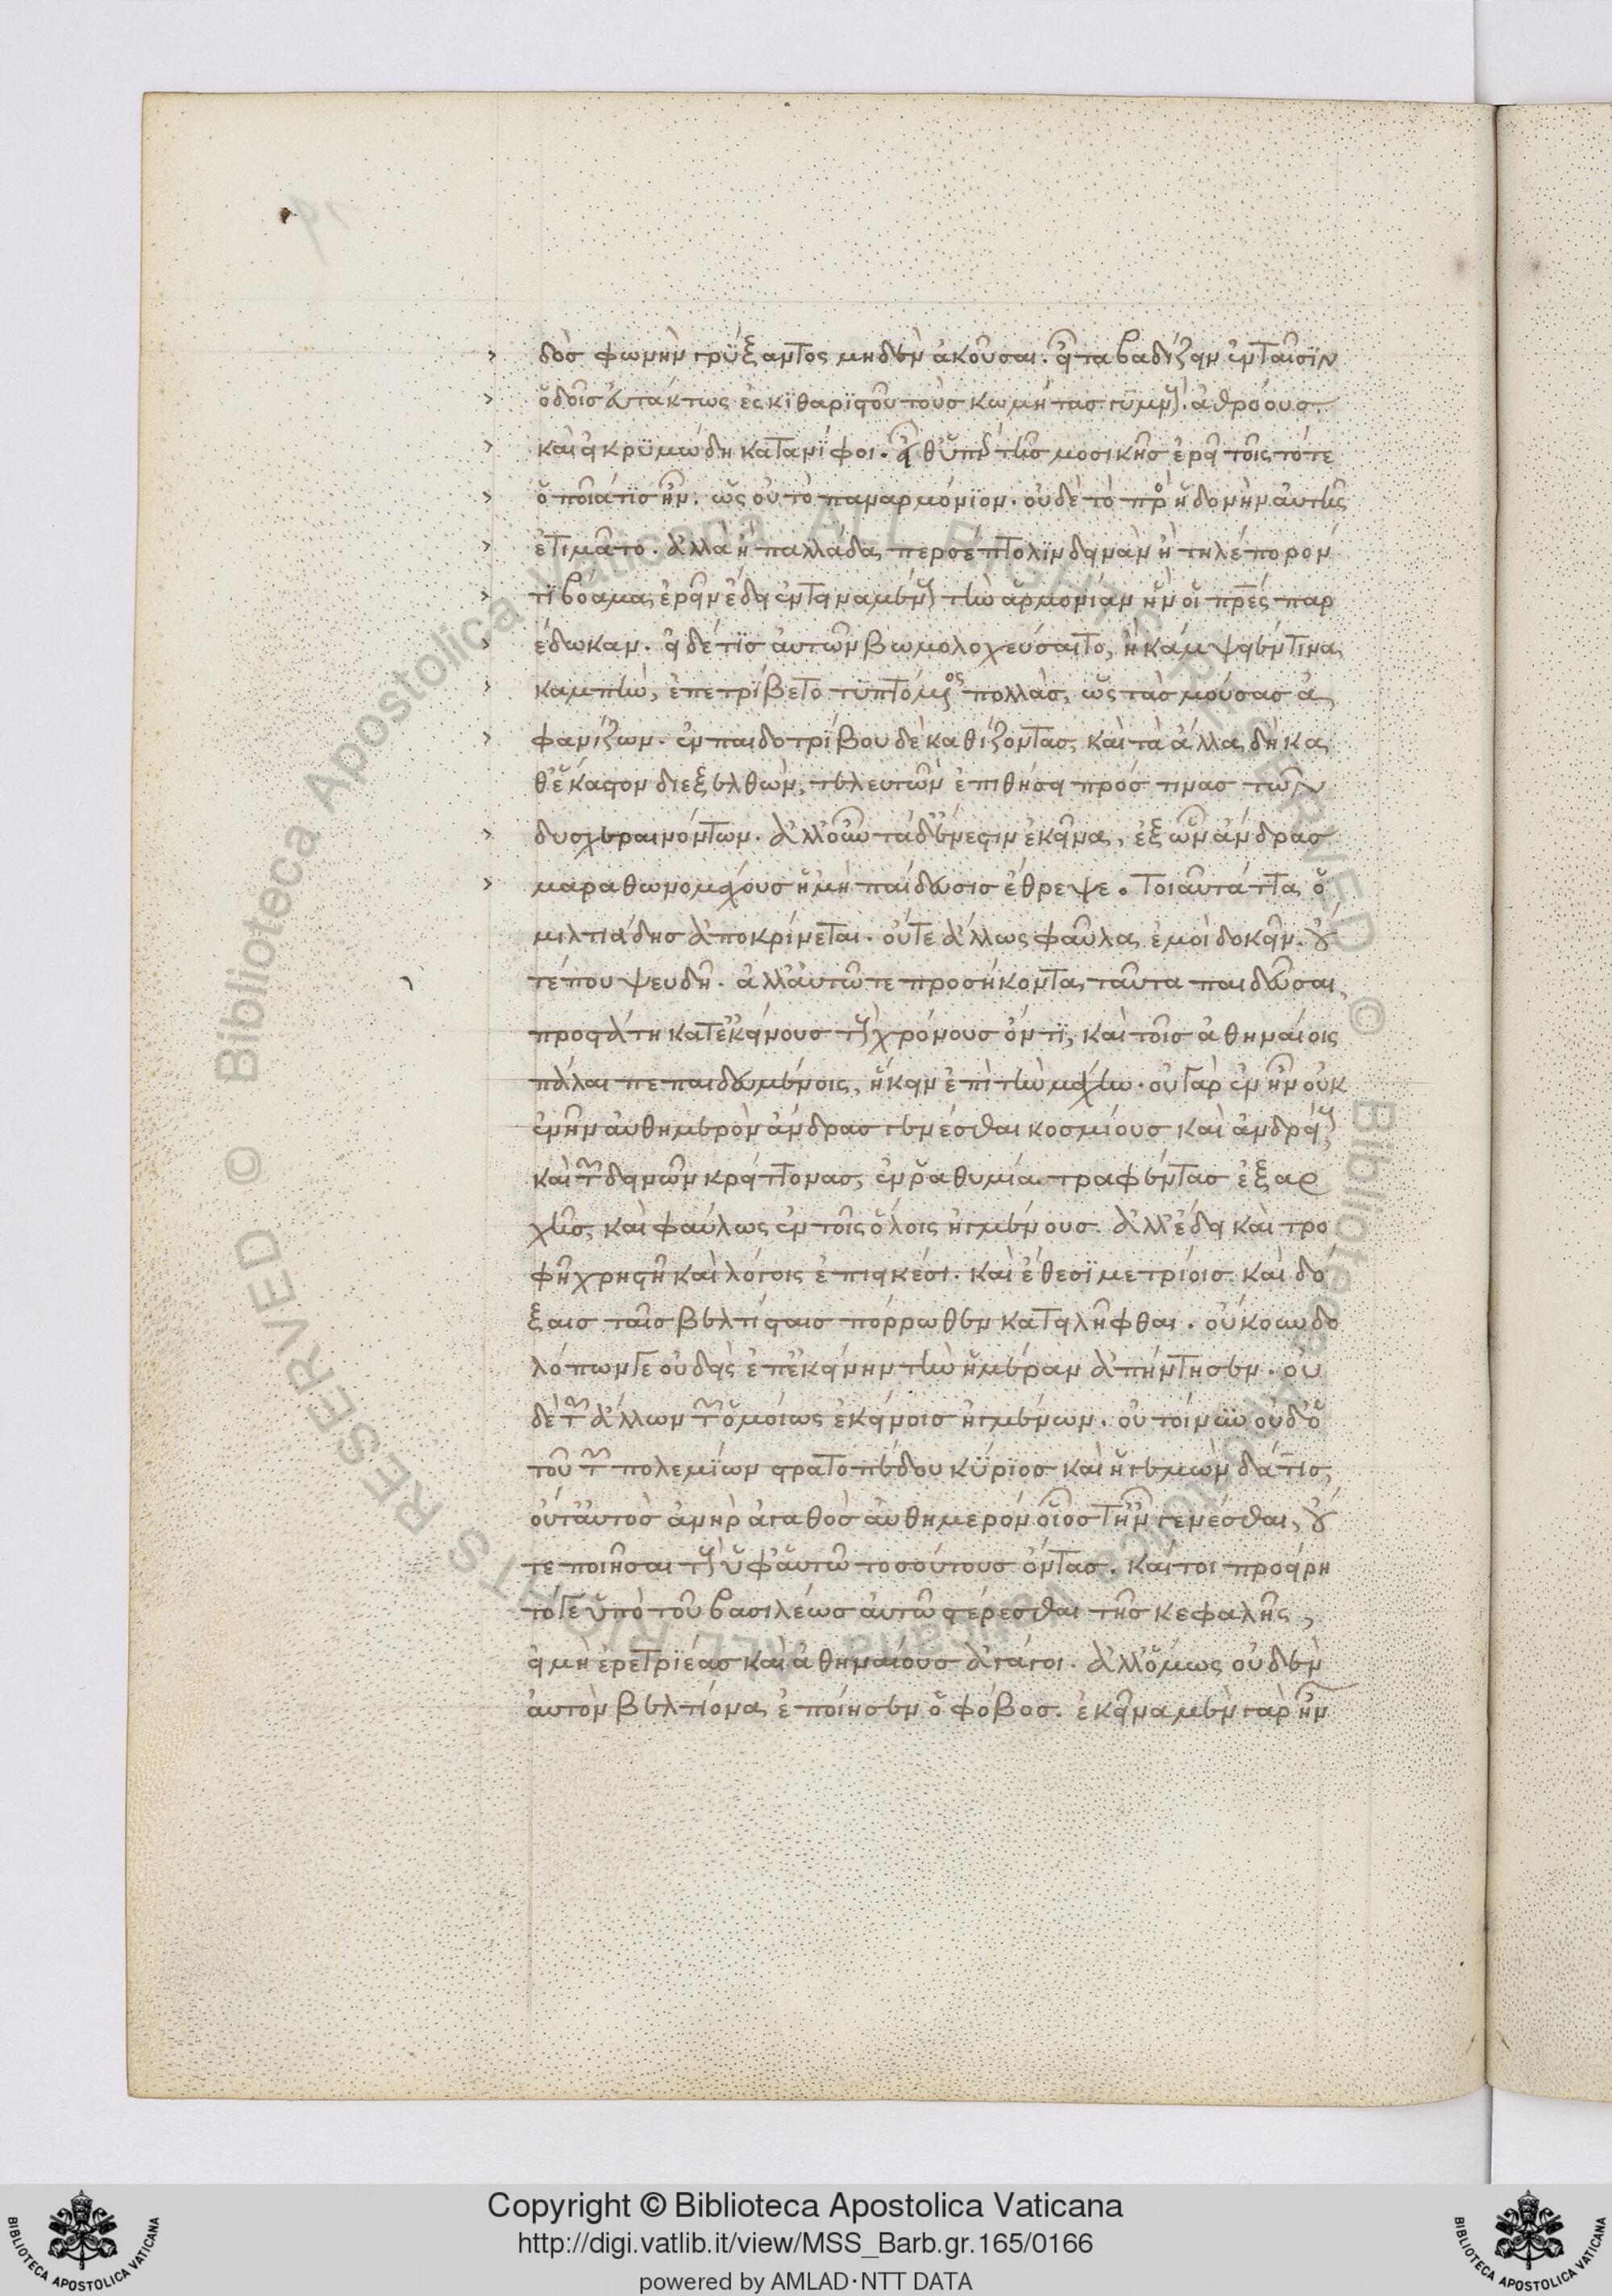 δὸς φωνὴν γρύξαντος μηδὲν ἀκοῦσαι. εἶτα βαδίζειν ἐν ταῖσιν
ὁδοῖς εὐτάκτως ἐς κιθαριστοῦ τοὺς κωμήτας γυμνοὺς. ἀθρόους.
καὶ εἰ κρυμώδη κατανίφοι. εἰ θ' ὑπὲρ τῆς μοσικῆς ἐρεῖ τοῖς τότε
ὁποία τις ἦν. ὡς οὐ τὸ παναρμόνιον. οὐδὲ τὸ πρὸς ἡδονὴν αὐτῆς
ἐτιμᾶτο. ἀλλὰ ἢ παλλάδα περσέπτολιν δεινὰν ἢ τηλέπορόν
τι βόαμα ἐρεῖν ἔδει ἐντειναμένους τὴν ἁρμονίαν ἣν οἱ πρες παρ
έδωκαν. εἰ δέ τις αὐτῶν βωμολοχεύσαιτο, ἢ κάμψειέν τινα
καμπὴν, ἐπετρίβετο τυπτόμενος πολλὰς, ὡς τὰς μούσας ἀ
φανίζων. ἐν παιδοτρίβου δὲ καθίζοντας καὶ τὰ ἄλλα δὴ κα
θ' ἕκαστον διεξελθὼν, τελευτῶν ἐπιθήσει πρός τινας τῶν
δυσχεραινόντων. ἀλλ' οὖν τάδ' ἔνεστιν ἐκεῖνα, ἐξ ὧν ἄνδρας
μαραθωνομάχους ἡ 'μὴ παίδευσις ἔθρεψε. Τοιαῦτα ἄττα ὁ
μιλτιάδης ἀποκρίνεται. οὔτε ἄλλως φαῦλα ἐμοὶ δοκεῖν. οὔ
τέ που ψευδῆ. ἀλλ' αὐτῶ τε προσήκοντα ταῦτα παιδεῦσαι
προστάτη κατ' ἐκείνους τοὺς χρόνους ὄντι, καὶ τοῖς ἀθηναίοις
πάλαι πεπαιδευμένοις, ἥκειν ἐπὶ τὴν μάχην. οὐ γὰρ ἐνῆν οὐκ
ἐνῆν αὐθημερὸν ἄνδρας γενέσθαι κοσμίους καὶ ἀνδρείους
καὶ τῶν δεινῶν κρείττονας, ἐν ῥαθυμία τραφέντας ἐξ ἀρ
χῆς, καὶ φαύλως ἐν τοῖς ὅλοις ἠγμένους. ἀλλ' ἔδει καὶ τρο
φῆ χρηστῆ καὶ λόγοις ἐπιεικέσι. καὶ ἔθεσι μετρίοις. καὶ δό
ξαις ταῖς βελτίσταις πόρρωθεν κατειλῆφθαι. οὔκουν δο
λόπων γε οὐδεὶς ἐπ' ἐκείνην τὴν ἡμέραν ἀπήντησεν. οὐ
δὲ τῶν ἄλλων τῶν ὁμοίως ἐκείνοις ἠγμένων. οὐ τοίνυν οὐδ' ὁ
τοῦ τῶν πολεμίων στρατοπέδου κύριος καὶ ἡγεμὼν δάτις,
οὔτ' αὐτὸς ἀνὴρ ἀγαθὸς αὐθημερὸν οἷός τ' ἦν γενέσθαι, οὔ
τε ποιῆσαι τοὺς ὑφ' αὑτῶ τοσούτους ὄντας. καί τοι προείρη
τό γε ὑπὸ τοῦ βασιλέως αὐτῶ στέρεσθαι τῆς κεφαλῆς,
εἰ μὴ ἐρετριέας καὶ ἀθηναίους ἀγάγοι. ἀλλ' ὅμως οὐδὲν
αὐτὸν βελτίονα ἐποίησεν ὁ φόβος. ἐκεῖνα μὲν γὰρ ἦν
Copyright © Biblioteca Apostolica Vaticana
http://digi.vatlib.it/view/MSS_Barb.gr.165/0166
powered by AMLAD·NTT DATA